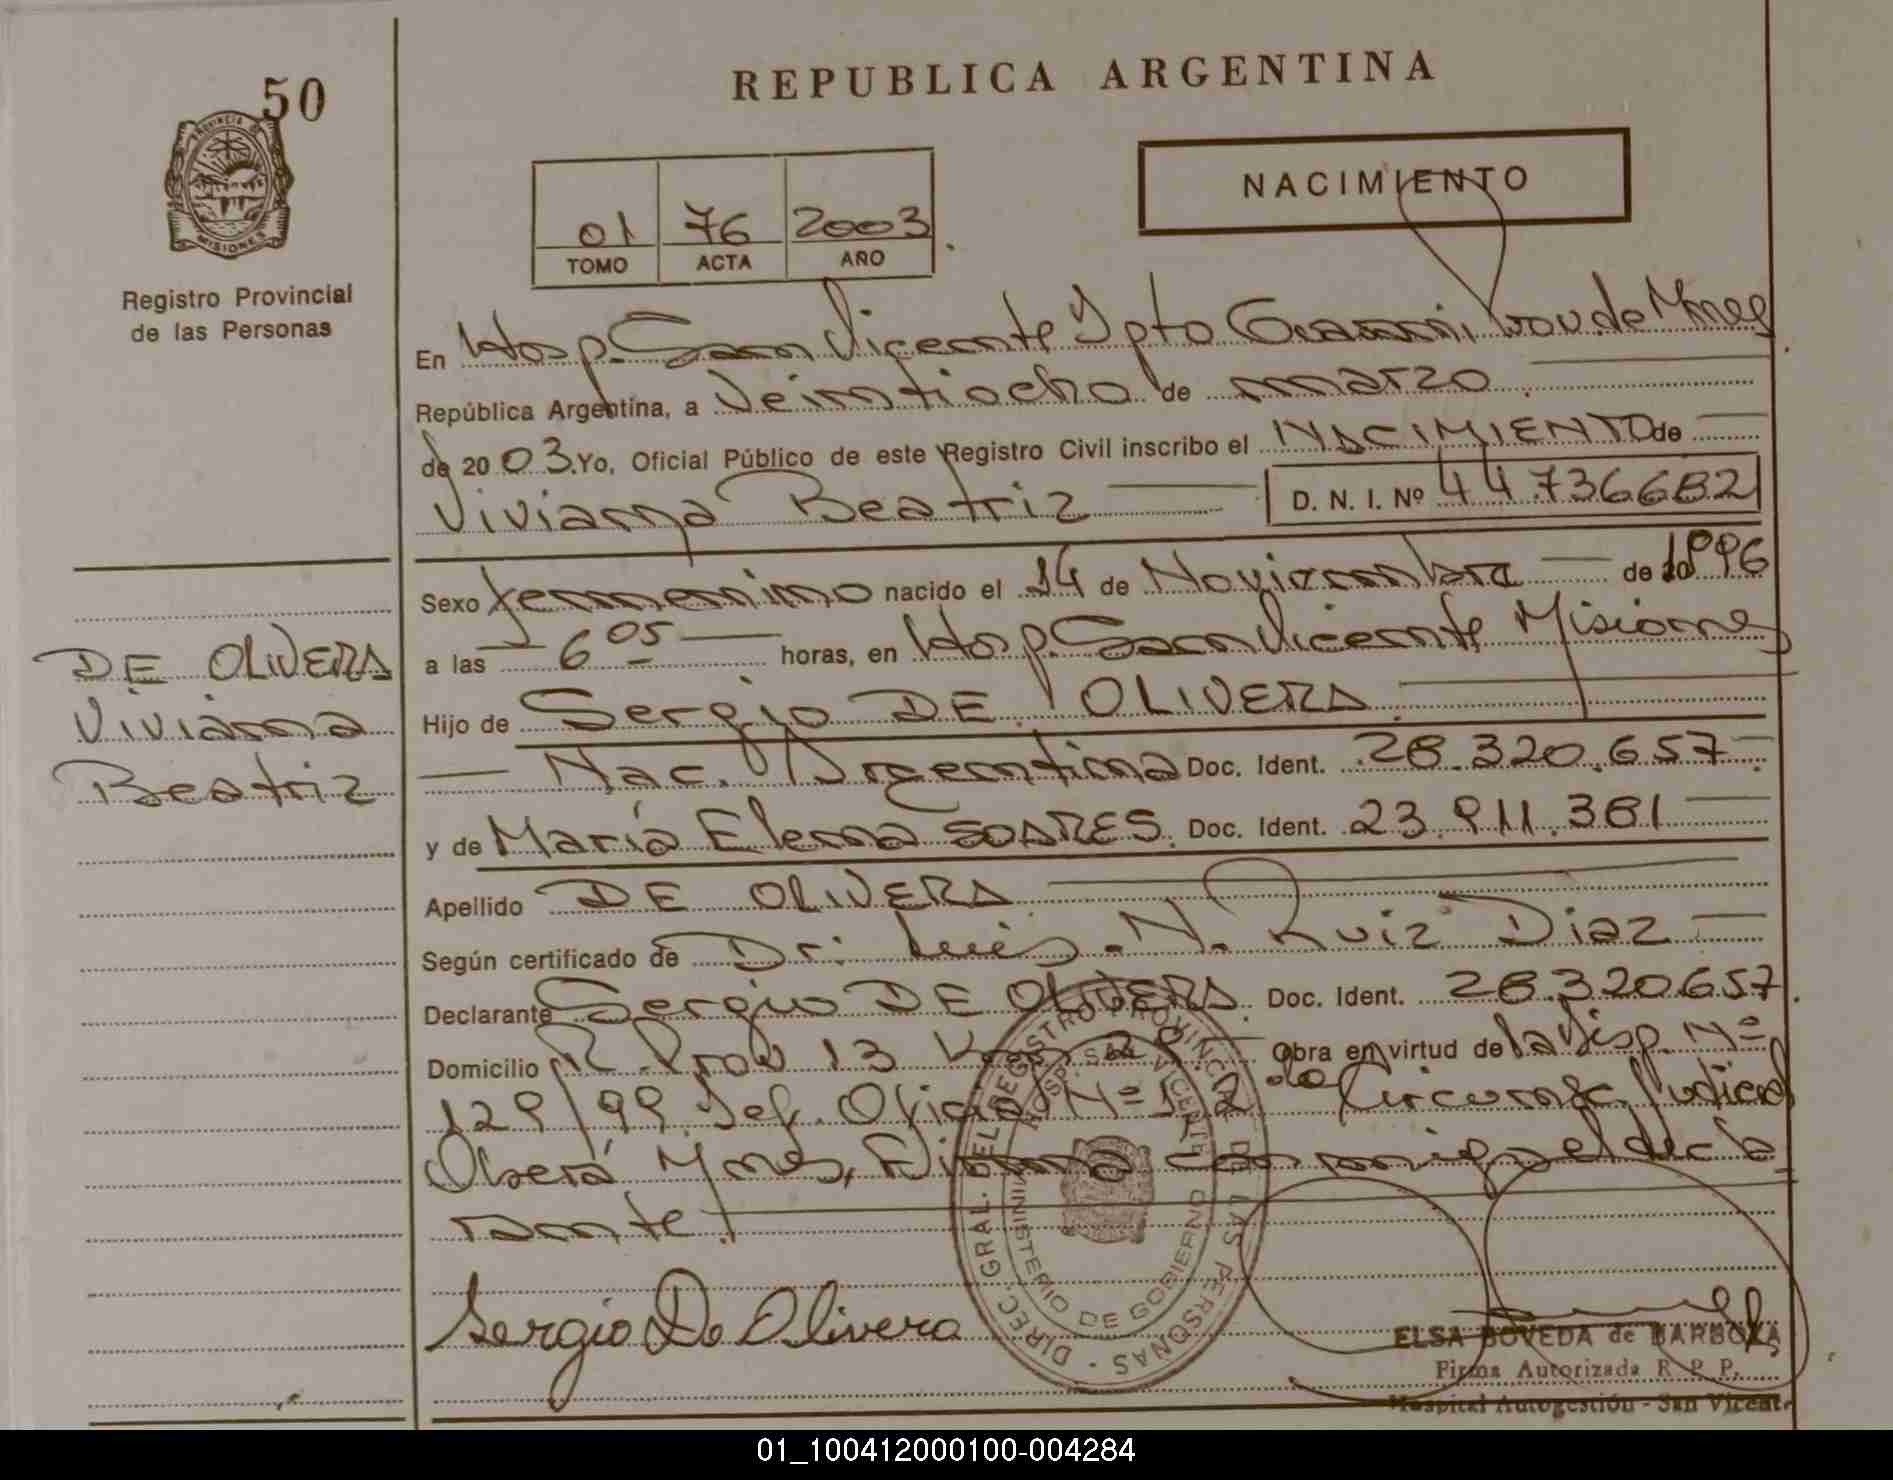 50
PROVINCIA DE
MISIONES
Registro Provincial
de las Personas
REPUBLICA ARGENTINA
NACIMIENTO
01 76 2003
TOMO ACTA AÑO
En Hosp. San Vicente Dpto Guarani, Prov. de Mnes
República Argentina, a Veintiocho de marzo
de 20 03. Yo, Oficial Público de este Registro Civil inscribo el NACIMIENTO de
Viviana Beatriz D. N. I. Nº 44.736682
Sexo femenino nacido el 14 de Noviembre de 1996
a las 6 05 horas, en Hosp. San Vicente Misiones
Hijo de Sergio DE OLIVERA
Nac. Argentina Doc. Ident. 28.320.657
y de María Elena SOARES. Doc. Ident. 23.911.381
Apellido DE OLIVERA
Según certificado de Dr. Luis. N. Ruiz Diaz
Declarante Sergio DE OLIVERA. Doc. Ident. 28.320.657.
Domicilio R. Prov 13 Obra en virtud de la Disp. Nº
129/99. Def. Oficial Nº 1, 2 da Circunsc. Judicial
Oberá Mnes, Firma conmigo el decla
rante.
DE OLIVERA
Viviana
Beatriz
Sergio De Olivera
DIREC. GRAL. DEL REGISTRO PROVINCIAL DE LAS PERSONAS
HOSP. SAN VICENTE
MINISTERIO DE GOBIERNO
ELSA BOVEDA de BARBOZA
Firma Autorizada R. P. P.
Hospital Autogestión - San Vicente
01_100412000100-004284